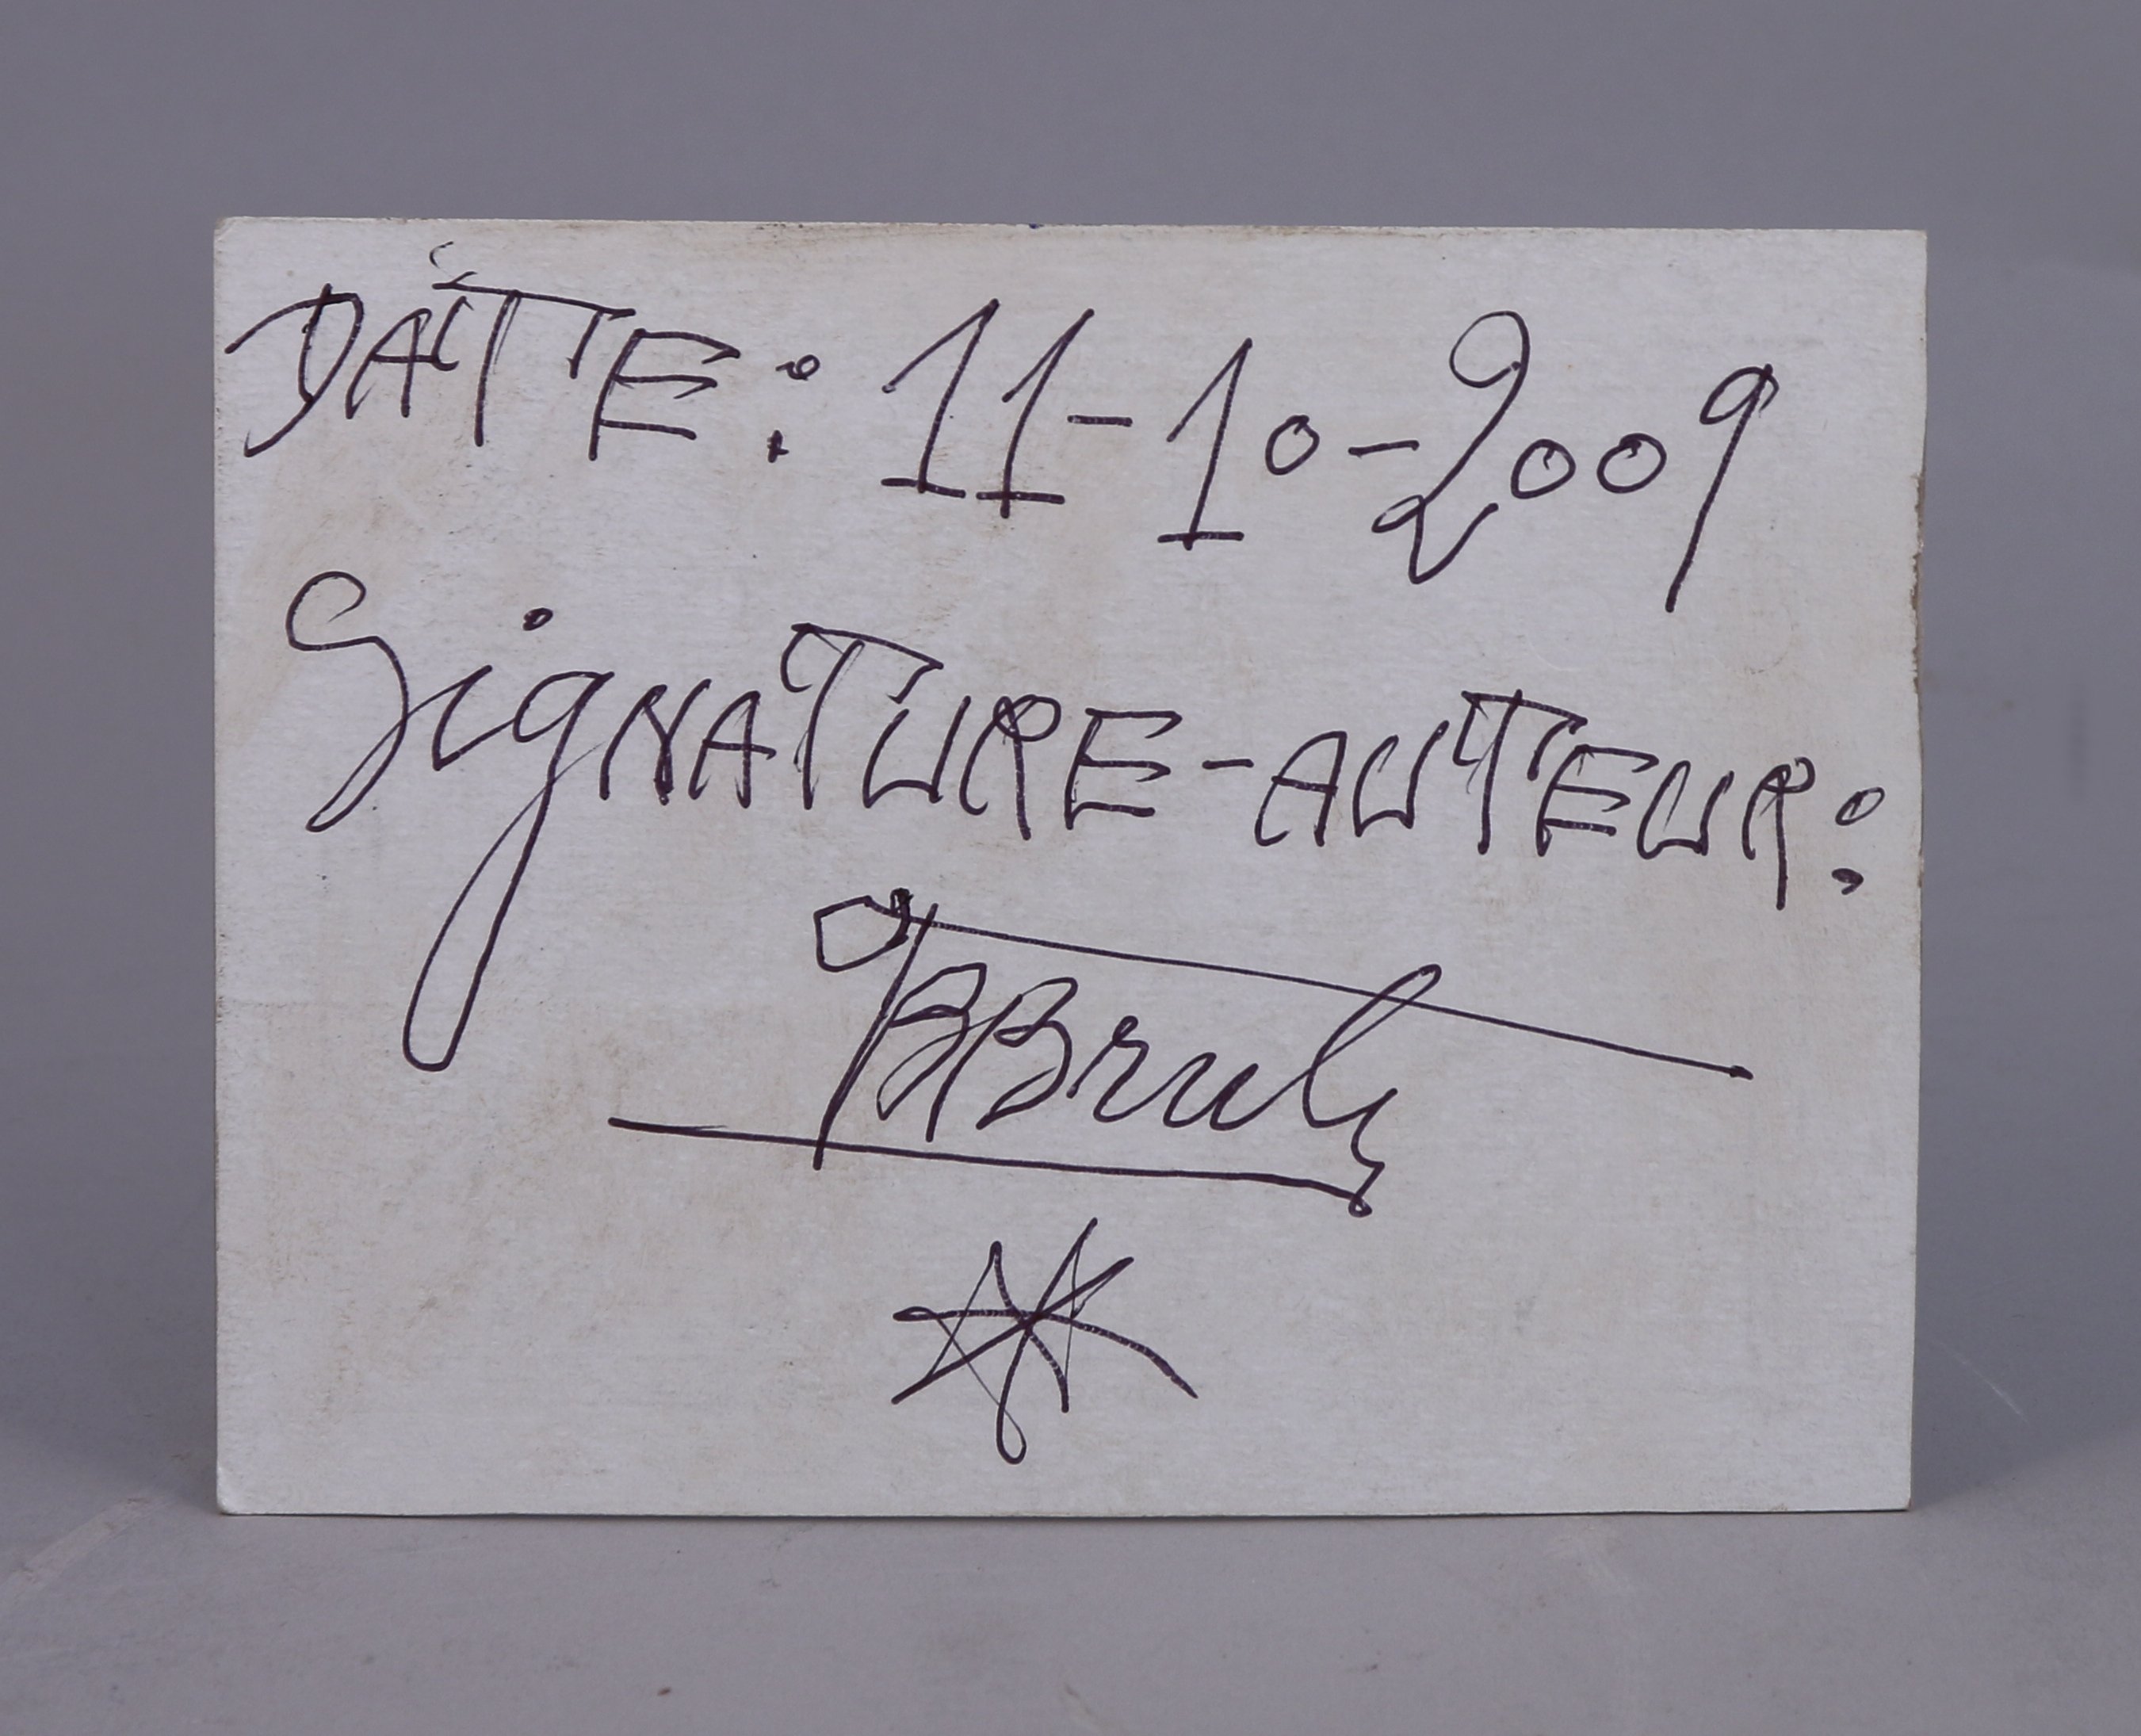 DATE: 11-10-2009
SigNATURE-AUTEUR: